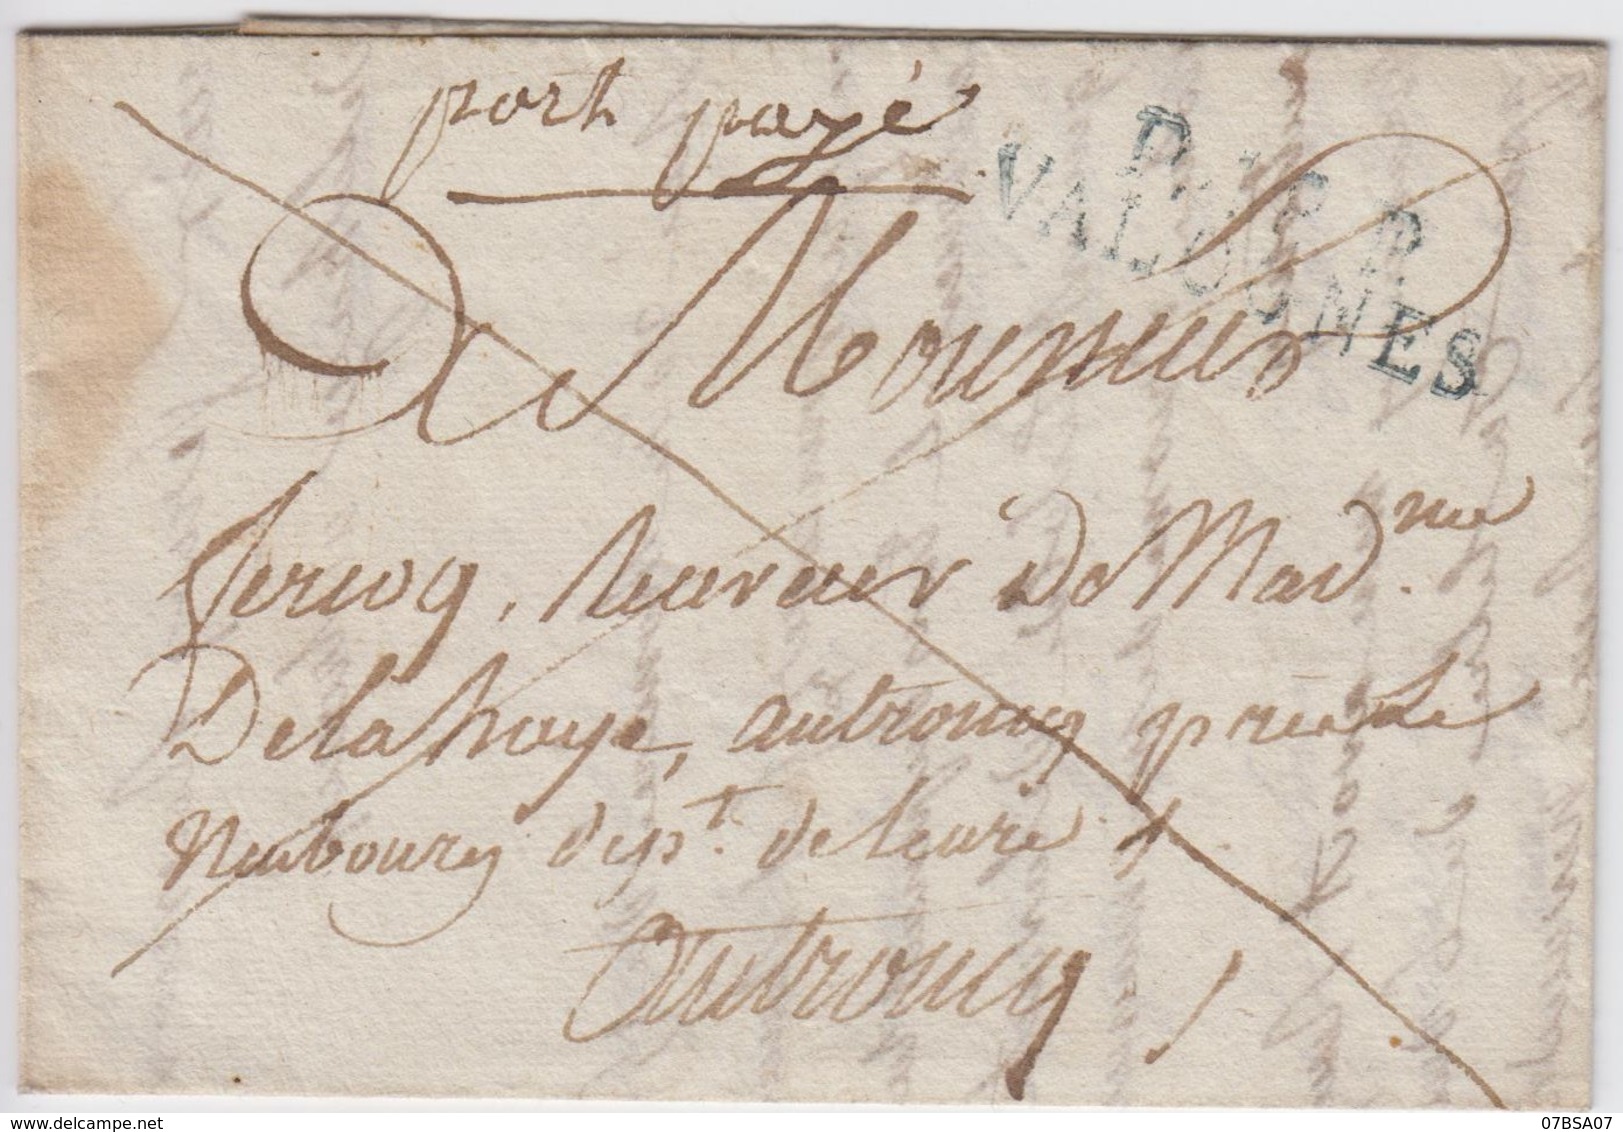 port payé
P. 48 P.
VALOGNES
a Monsieur
receveur De Mad.me
Delahaye, autrouy près Le
Neubourg dépt. de leure
Autrouy
07BSA07